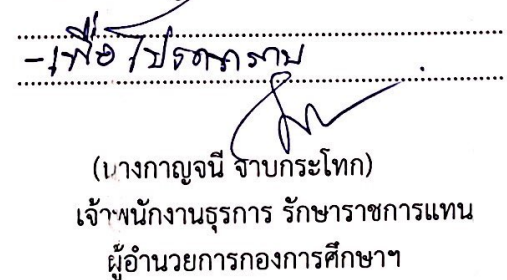 - เพื่อโปรดทราบ
(นางกาญจนี จาบกระโทก)
เจ้าพนักงานธุรการ รักษาราชการแทน
ผู้อำนวยการกองการศึกษาฯ